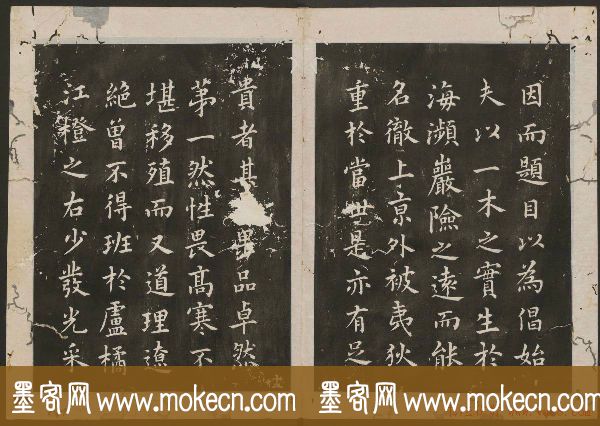 因而題目以為倡始
夫以一木之實生於
海瀕巖險之遠而能
名徹上京外被夷狄
重於當世是亦有足
貴者其果品卓然
第一然性畏高寒不
堪移殖而又道理遼
絕曾不得班於盧橘
江橙之右少發光采
墨客网 www.mokecn.com
墨客网 www.mokecn.com